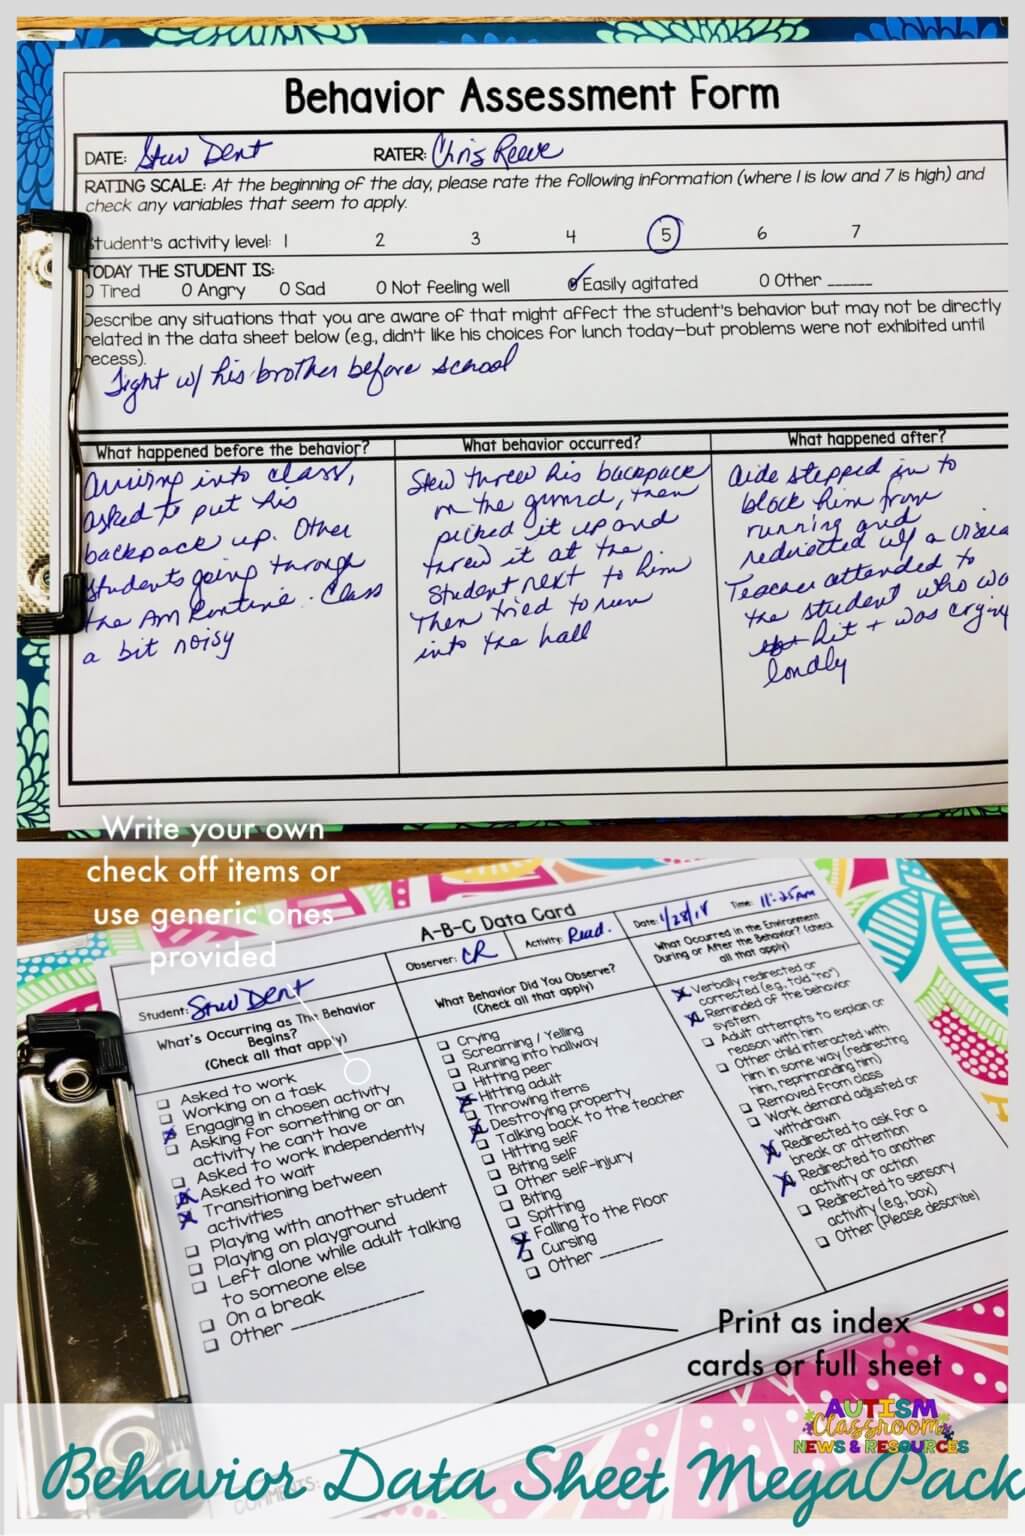 Behavior Assessment Form
DATE: Stew Dent RATER: Chris Reeve
RATING SCALE: At the beginning of the day, please rate the following information (where 1 is low and 7 is high) and
check any variables that seem to apply.
Student's activity level: 1 2 3 4 5 6 7
TODAY THE STUDENT IS:
O Tired O Angry O Sad O Not feeling well O Easily agitated O Other ______
Describe any situations that you are aware of that might affect the student's behavior but may not be directly
related in the data sheet below (e.g., didn't like his choices for lunch today–but problems were not exhibited until
recess).
Fight w/ his brother before school
What happened before the behavior?
Arriving into class,
asked to put his
backpack up. Other
students going through
the AM Routine. Class
a bit noisy
What behavior occurred?
Stew threw his backpack
on the ground, then
picked it up and
threw it at the
student next to him
Then tried to run
into the hall
What happened after?
Aide stepped in to
block him from
running and
redirected w/ a visua
Teacher attended to
the student who wa
hit + was crying
loudly
Write your own
check off items or
use generic ones
provided
A-B-C Data Card
Student: Stew Dent
Observer: CR
Activity: Read.
Date: 1/28/18 Time: 11:25am
What's Occurring as The Behavior
Begins?
(Check all that apply)
Asked to work
Working on a task
Engaging in chosen activity
Asking for something or an
activity he can't have
Asked to work independently
Asked to wait
Transitioning between
activities
Playing with another student
Playing on playground
Left alone while adult talking
to someone else
On a break
Other ____________
What Behavior Did You Observe?
(Check all that apply)
Crying
Screaming / Yelling
Running into hallway
Hitting peer
Hitting adult
Throwing items
Destroying property
Talking back to the teacher
Hitting self
Biting self
Other self-injury
Biting
Spitting
Falling to the floor
Cursing
Other ________
What Occurred in the Environment
During or After the Behavior? (check
all that apply)
Verbally redirected or
corrected (e.g., told "no")
Reminded of the behavior
system
Adult attempts to explain or
reason with him
Other child interacted with
him in some way (redirecting
him, reprimanding him)
Removed from class
Work demand adjusted or
withdrawn
Redirected to ask for a
break or attention
Redirected to another
activity or action
Redirected to sensory
activity (e.g., box)
Other (Please describe)
Print as index
cards or full sheet
COMMENTS:
AUTISM
Classroom
NEWS & RESOURCES
Behavior Data Sheet MegaPack